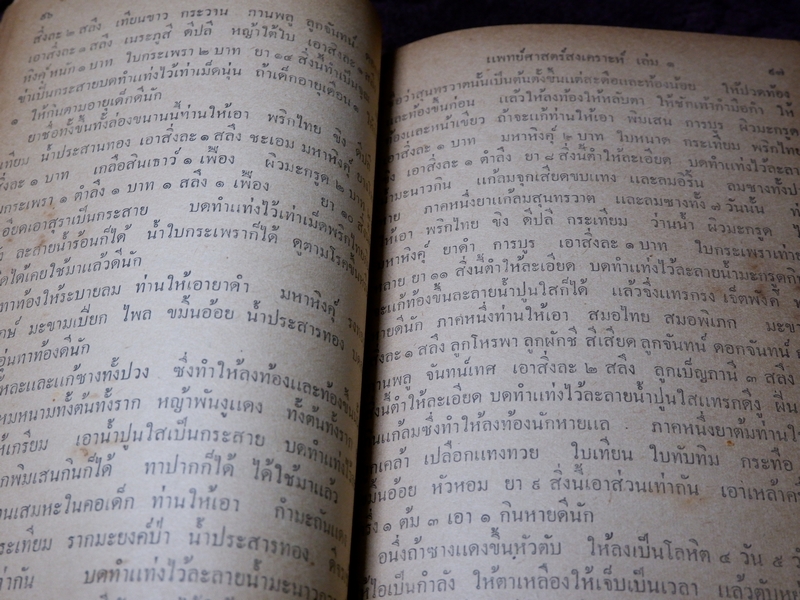 ๕๖
สิ่งละ ๒ สลึง เทียนขาว กระวาน กานพลู ลูกจันทน์
เอาสิ่งละ ๑ สลึง เนระภูสี ดีปลี หญ้าใต้ใบ เอาสิ่งละ ๑
หิงคุ์ หนัก ๑ บาท ใบกระเพรา ๒ บาท ยา ๑๔ สิ่งนี้ทำเป็น
ขุ่นเป็นกระสายบดทำแท่งไว้เท่าเม็ดนุ่น ถ้าเด็กอายุเดือน ๑
๑ ให้กินตามอายุเด็กดีนัก
ยาซ่องทั้งขึ้นทั้งล่องขนานนี้ท่านให้เอา พริกไทย ขิง
เทียม น้ำประสานทอง เอาสิ่งละ ๑ สลึง ชะเอม มหาหิงคุ์
สิ่งละ ๑ บาท เกลือสินเธาว์ ๑ เฟื้อง ผิวมะกรูด ๒ บาท
บกระเพรา ๑ ตำลึง ๑ บาท ๑ สลึง ๑ เฟื้อง ยา ๑๐
ะเอียดเอาสุราเป็นกระสาย บดทำแท่งไว้เท่าเม็ดพริกไทย
ละลายน้ำร้อนก็ได้ น้ำใบกระเพราก็ได้ ดูตามโรค
ได้เคยใช้มาแล้วดีนัก
ทาท้องให้ระบายลม ท่านให้เอายาดำ มหาหิงคุ์
มะขามเปียก ไพล ขมิ้นอ้อย น้ำประสารทอง
ทาท้องดีนัก
และแก้ซางทั้งปวง ซึ่งทำให้ลงท้องและท้องขึ้น
หนามทั้งต้นทั้งราก หญ้าพันงูแดง ทั้งต้นทั้งราก
ให้เกรียม เอาน้ำปูนใสเป็นกระสาย บดทำแท่งไว้
กพิมเสนกินก็ได้ ทาปากก็ได้ ได้ใช้มาแล้ว
เสมหะในคอเด็ก ท่านให้เอา กำมะถันแดง
ะเทียม รากมะยงค์ป่า น้ำประสารทอง
ท่ากัน บดทำแท่งไว้ละลายน้ำมะนาว
แพทย์ศาสตร์สงเคราะห์ เล่ม ๑
๕๗
ว่าสุนทรวาตนั้นเป็นต้นตั้งขึ้นแต่สะดือและท้องน้อย ให้ปวดท้อง
และท้องขึ้นก่อน แล้วให้ลงท้องให้หลับตา ให้ชักเท้ากำมือกำ ให้
และหน้าเขียว ถ้าจะแก้ท่านให้เอา พิมเสน การบูร ผิวมะกรูด
เอาสิ่งละ ๑ บาท มหาหิงคุ์ ๒ บาท ใบหนาด กระเทียม พริกไทย
เอาสิ่งละ ๑ ตำลึง ยา ๘ สิ่งนี้ตำให้ละเอียด บดทำแท่งไว้ละลาย
ำมะนาวกิน แก้ลมจุกเสียดขบแทง และลมอริ้น ลมซางทั้งปวง
าย ภาคหนึ่งยาแก้ลมสุนทรวาต และลมซางทั้ง ๗ วันนั้น
ให้เอา พริกไทย ขิง ดีปลี กระเทียม ว่านน้ำ ผิวมะกรูด
มหาหิงคุ์ ยาดำ การบูร เอาสิ่งละ ๑ บาท ใบกระเพราเท่ายา
ยา ๑๑ สิ่งนี้ตำให้ละเอียด บดทำแท่งไว้ละลายน้ำมะกรูดกิน
แก้ท้องขึ้นละลายน้ำปูนใสก็ได้ แล้วจึงแทรกรง เจ็ตพังคี
ายดีนัก ภาคหนึ่งท่านให้เอา สมอไทย สมอพิเภก
งละ ๑ สลึง ลูกโหรพา ลูกผักชี สีเสียด ลูกจันทน์ ดอกจันทน์
านพลู จันทน์เทศ เอาสิ่งละ ๒ สลึง ลูกเบ็ญกานี ๓ สลึง
นี้ตำให้ละเอียด บดทำแท่งไว้ละลายน้ำปูนใสแทรกดีงู ฝิ่น
แก้ลมซึ่งทำให้ลงท้องนักหายแล ภาคหนึ่งยาต้มท่าน
เปลือกแทงทวย ใบเทียน ใบทับทิม กระทือ
มิ้นอ้อย หัวหอม ยา ๙ สิ่งนี้เอาส่วนเท่ากัน เอาเหล้า
๑ ต้ม ๓ เอา ๑ กินหายดีนัก
อนึ่งถ้าซางแดงขึ้นหัวตับ ให้ลงเป็นโลหิต ๔ วัน ๕
เป็นกำลัง ให้ตาเหลืองให้เจ็บเป็นเวลา แล้วตับ